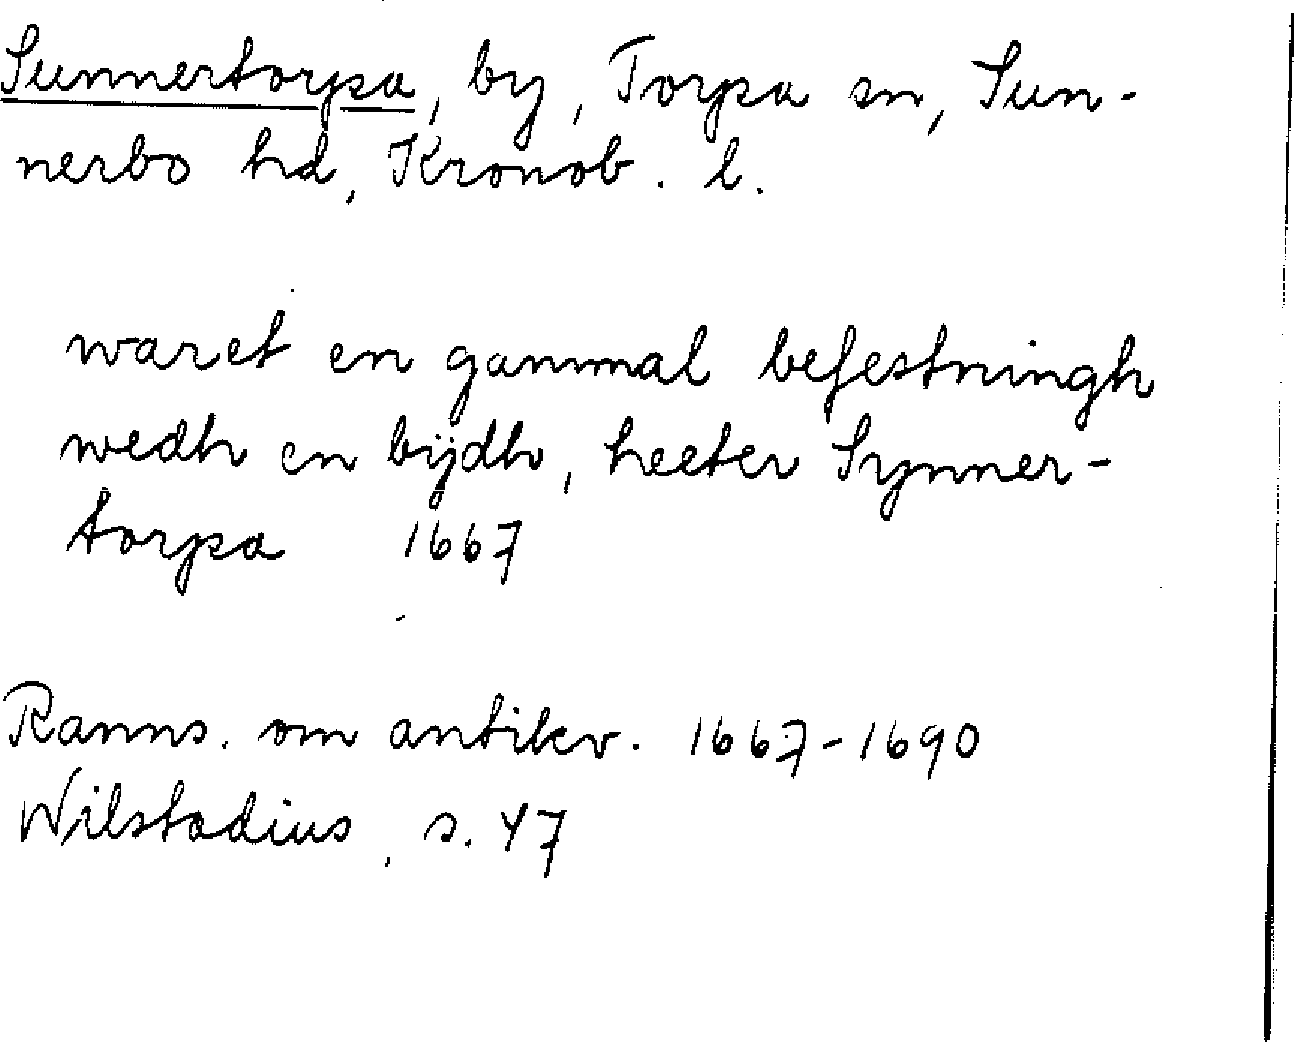 Sunnertorpa, by, Torpa sn, Sun-
nerbo hd, Kronob. l.
waret en gammal befestningh
wedh en bijdh, heeter Synner-
torpa 1667
Ranns. om antikv. 1667-1690
Wilstadius, s. 47